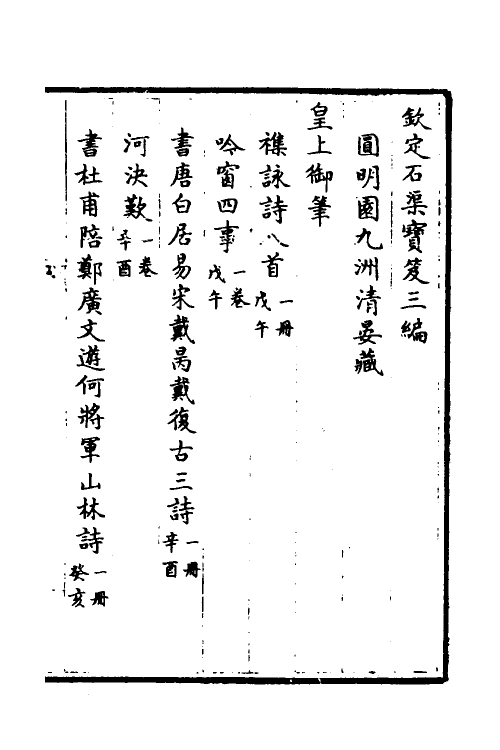 欽定石渠寶笈三編
圓明園九洲清晏藏
皇上御筆
襍詠詩八首 一冊 戊午
吟窗四事 一卷 戊午
書唐白居易宋戴昺戴復古三詩 一冊 辛酉
河決歎 一卷 辛酉
書杜甫陪鄭廣文遊何將軍山林詩 一冊 癸亥